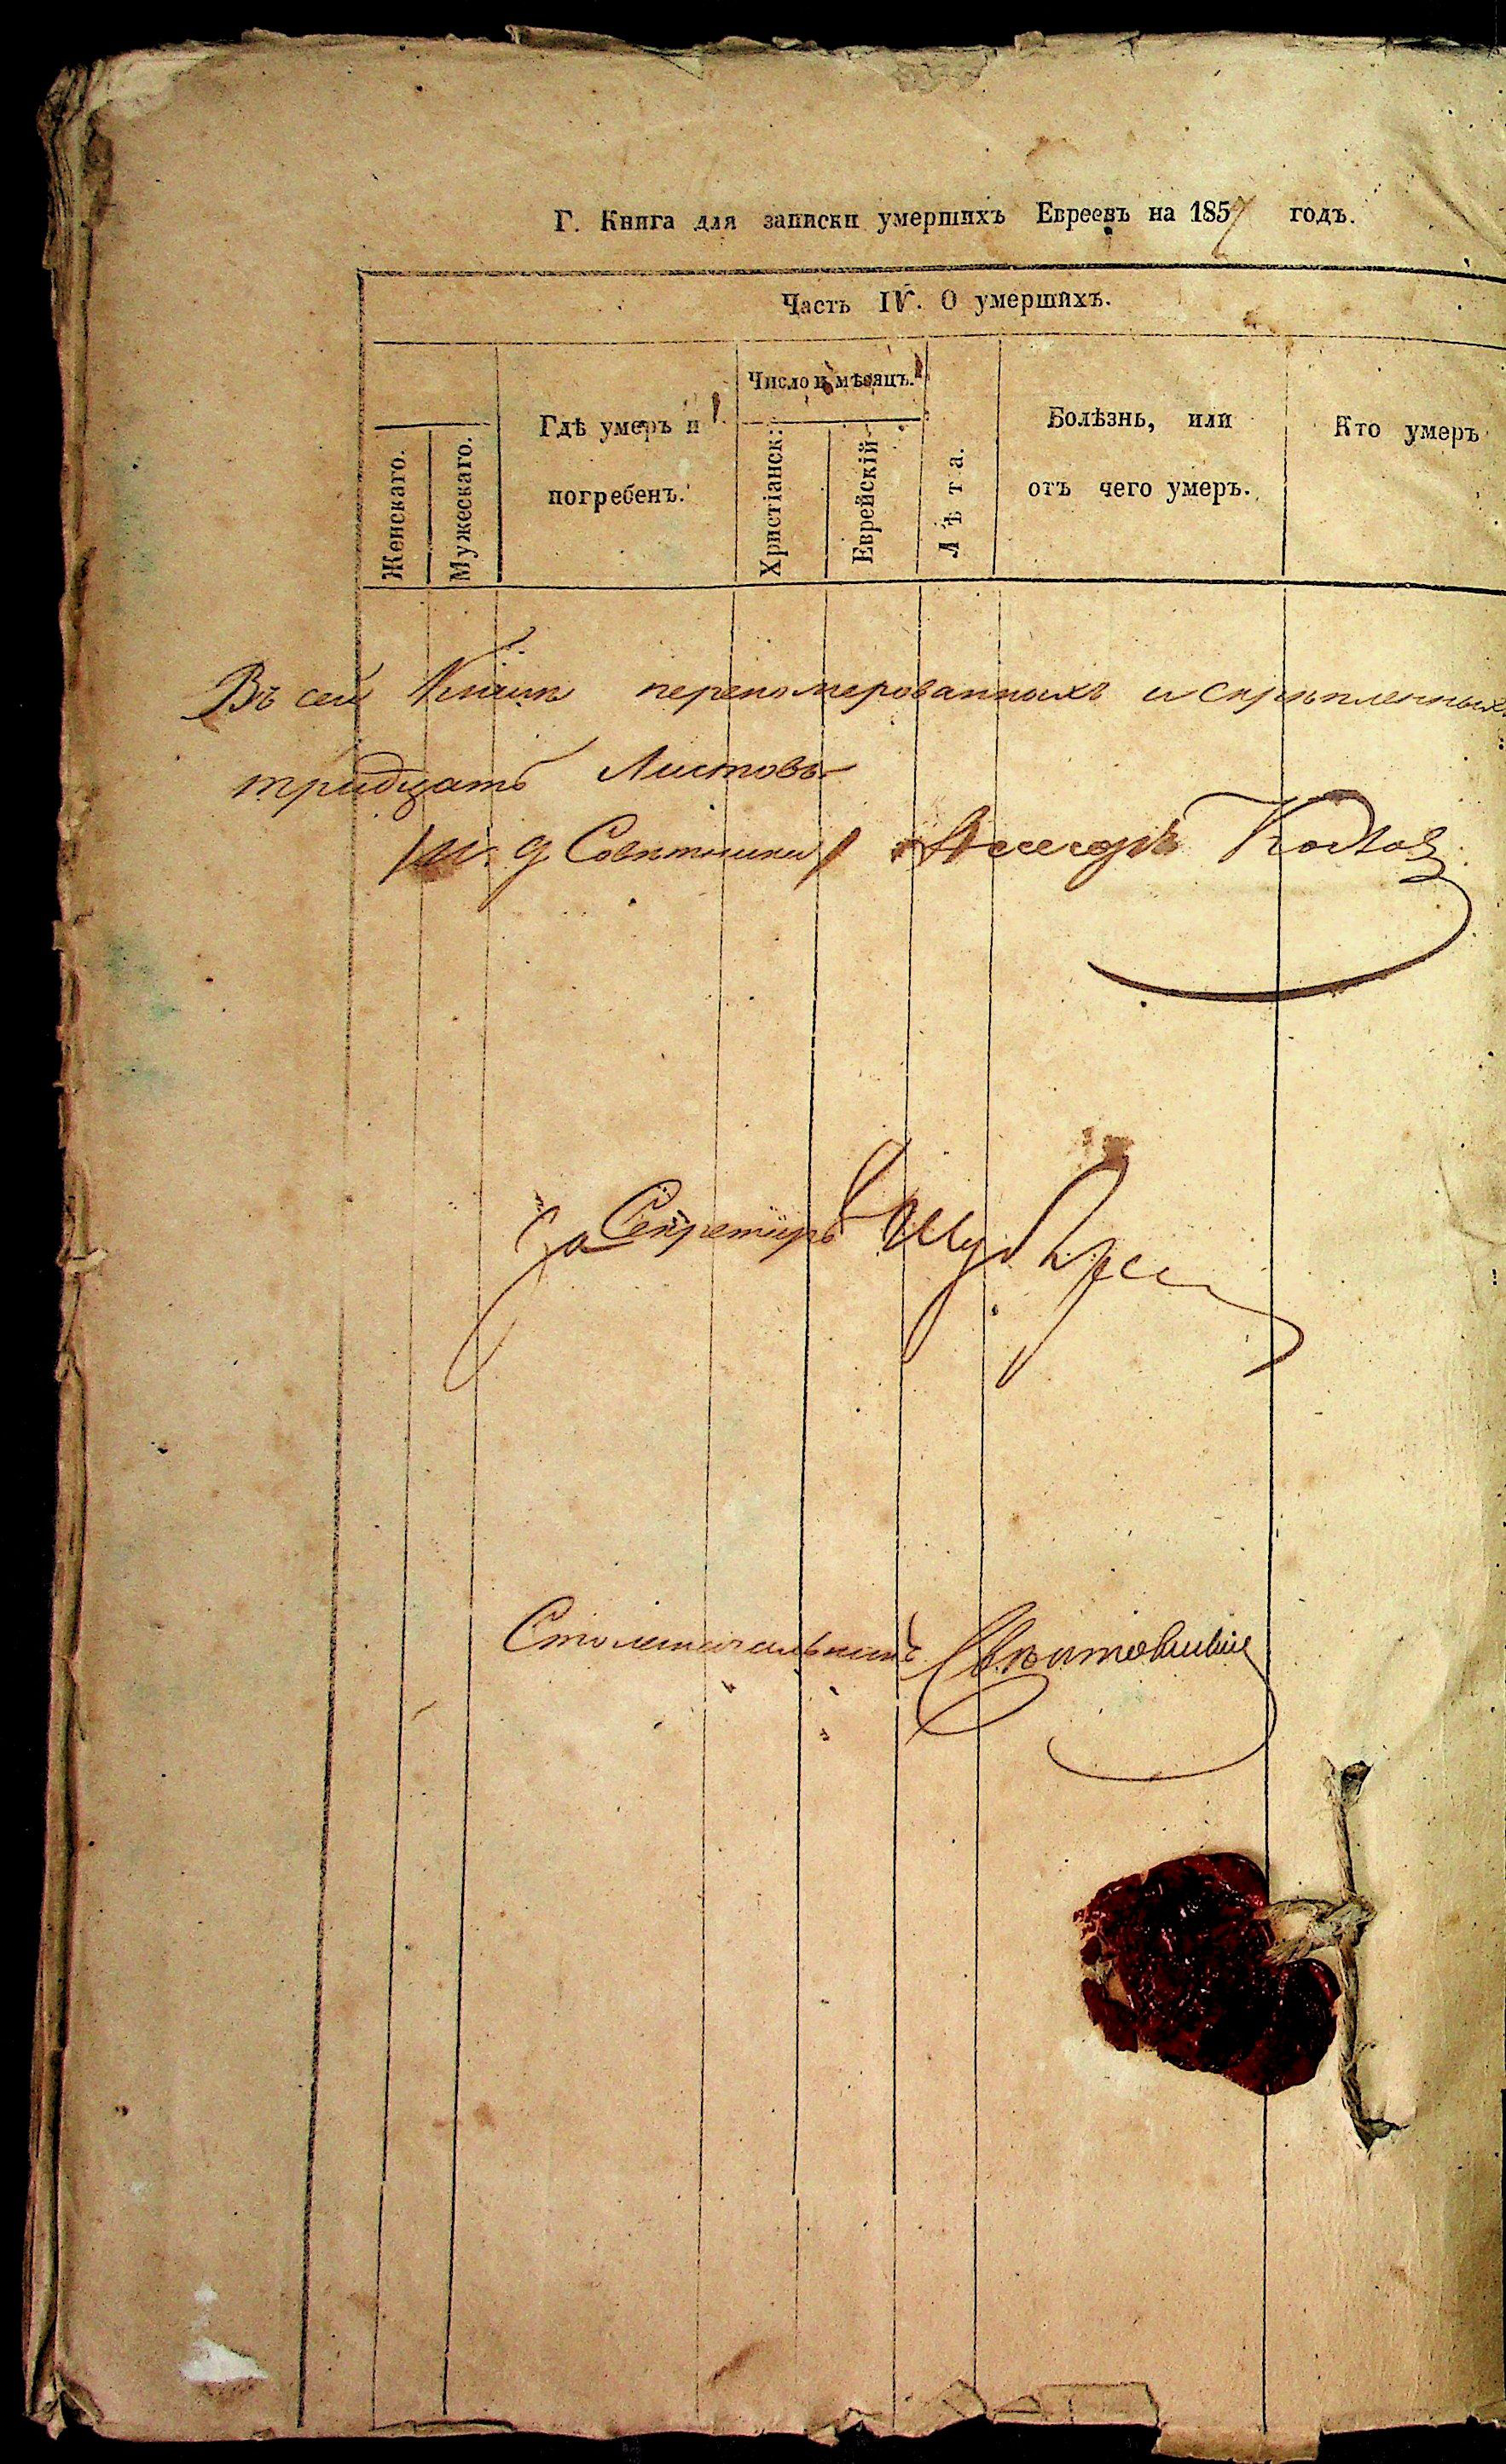 Г. Книга для записки умершихъ Евреевъ на 1857 годъ.
Часть IV. О умершихъ.
Женскаго.
Мужескаго.
Гдѣ умеръ и
погребенъ.
Число и мѣсяцъ.
Христіанск:
Еврейскій
Лѣта.
Болѣзнь, или
отъ чего умеръ.
Кто умеръ
Въ сей Книгѣ перепомерованныхъ и скрѣпленныхъ
тридцать Листовъ
И. д. Совѣтника Ассесоръ
За Секретаря
Столоначальникъ